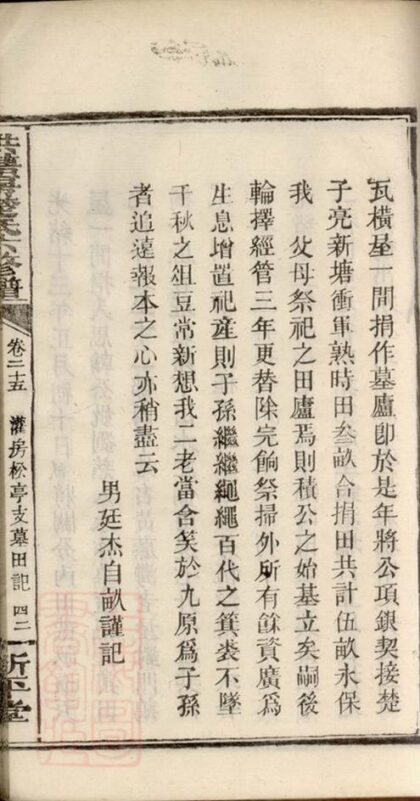 瓦橫屋一間捐作墓廬卽於是年將公項銀契接楚
子亮新塘衝軍熟時田叄畝合捐田共計伍畝永保
我 父母祭祀之田廬焉則積公之始基立矣嗣後
輪擇經管三年更替除完餉祭掃外所有餘資廣爲
生息增置祀產則子孫繼繼繩繩百代之箕裘不墜
千秋之俎豆常新想我二老當含笑於九原爲子孫
者追遠報本之心亦稍盡云
男廷杰自畝謹記
六修譜
卷二十五
灌房松亭支墓田記
四二
新平堂